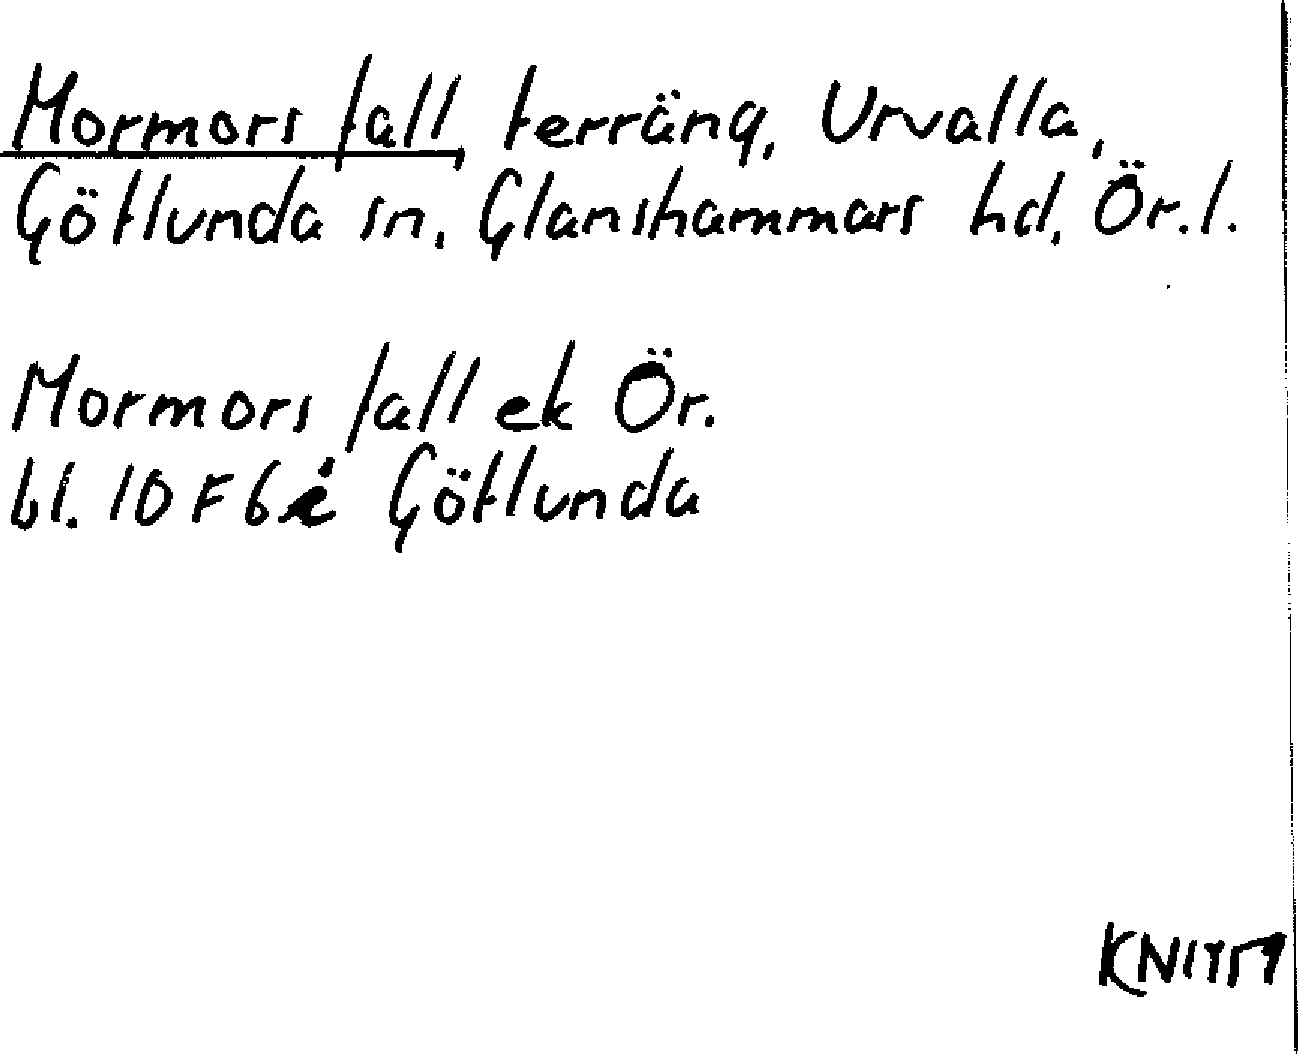 Mormors fall, terräng, Urvalla,
Götlunda sn, Glanshammars hd, Ör.l.
Mormors fall ek Ör.
bl. 10 F 6 i Götlunda